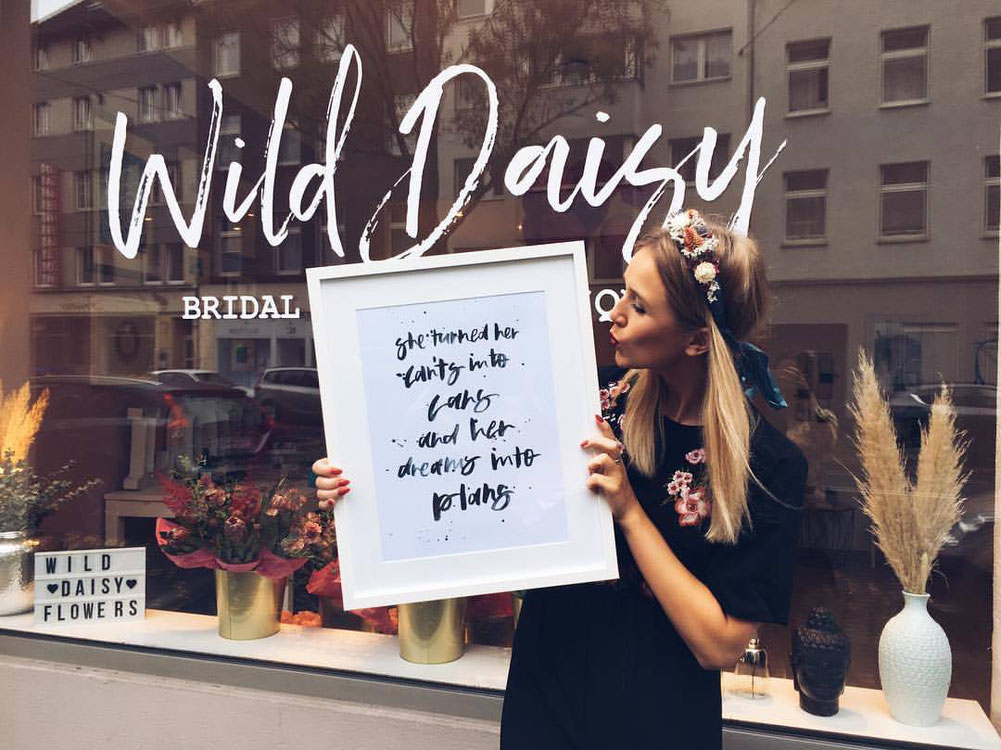 Wild Daisy
BRIDAL
she turned her
can'ts into
cans
and her
dreams into
plans
WILD
♥DAISY♥
FLOWERS